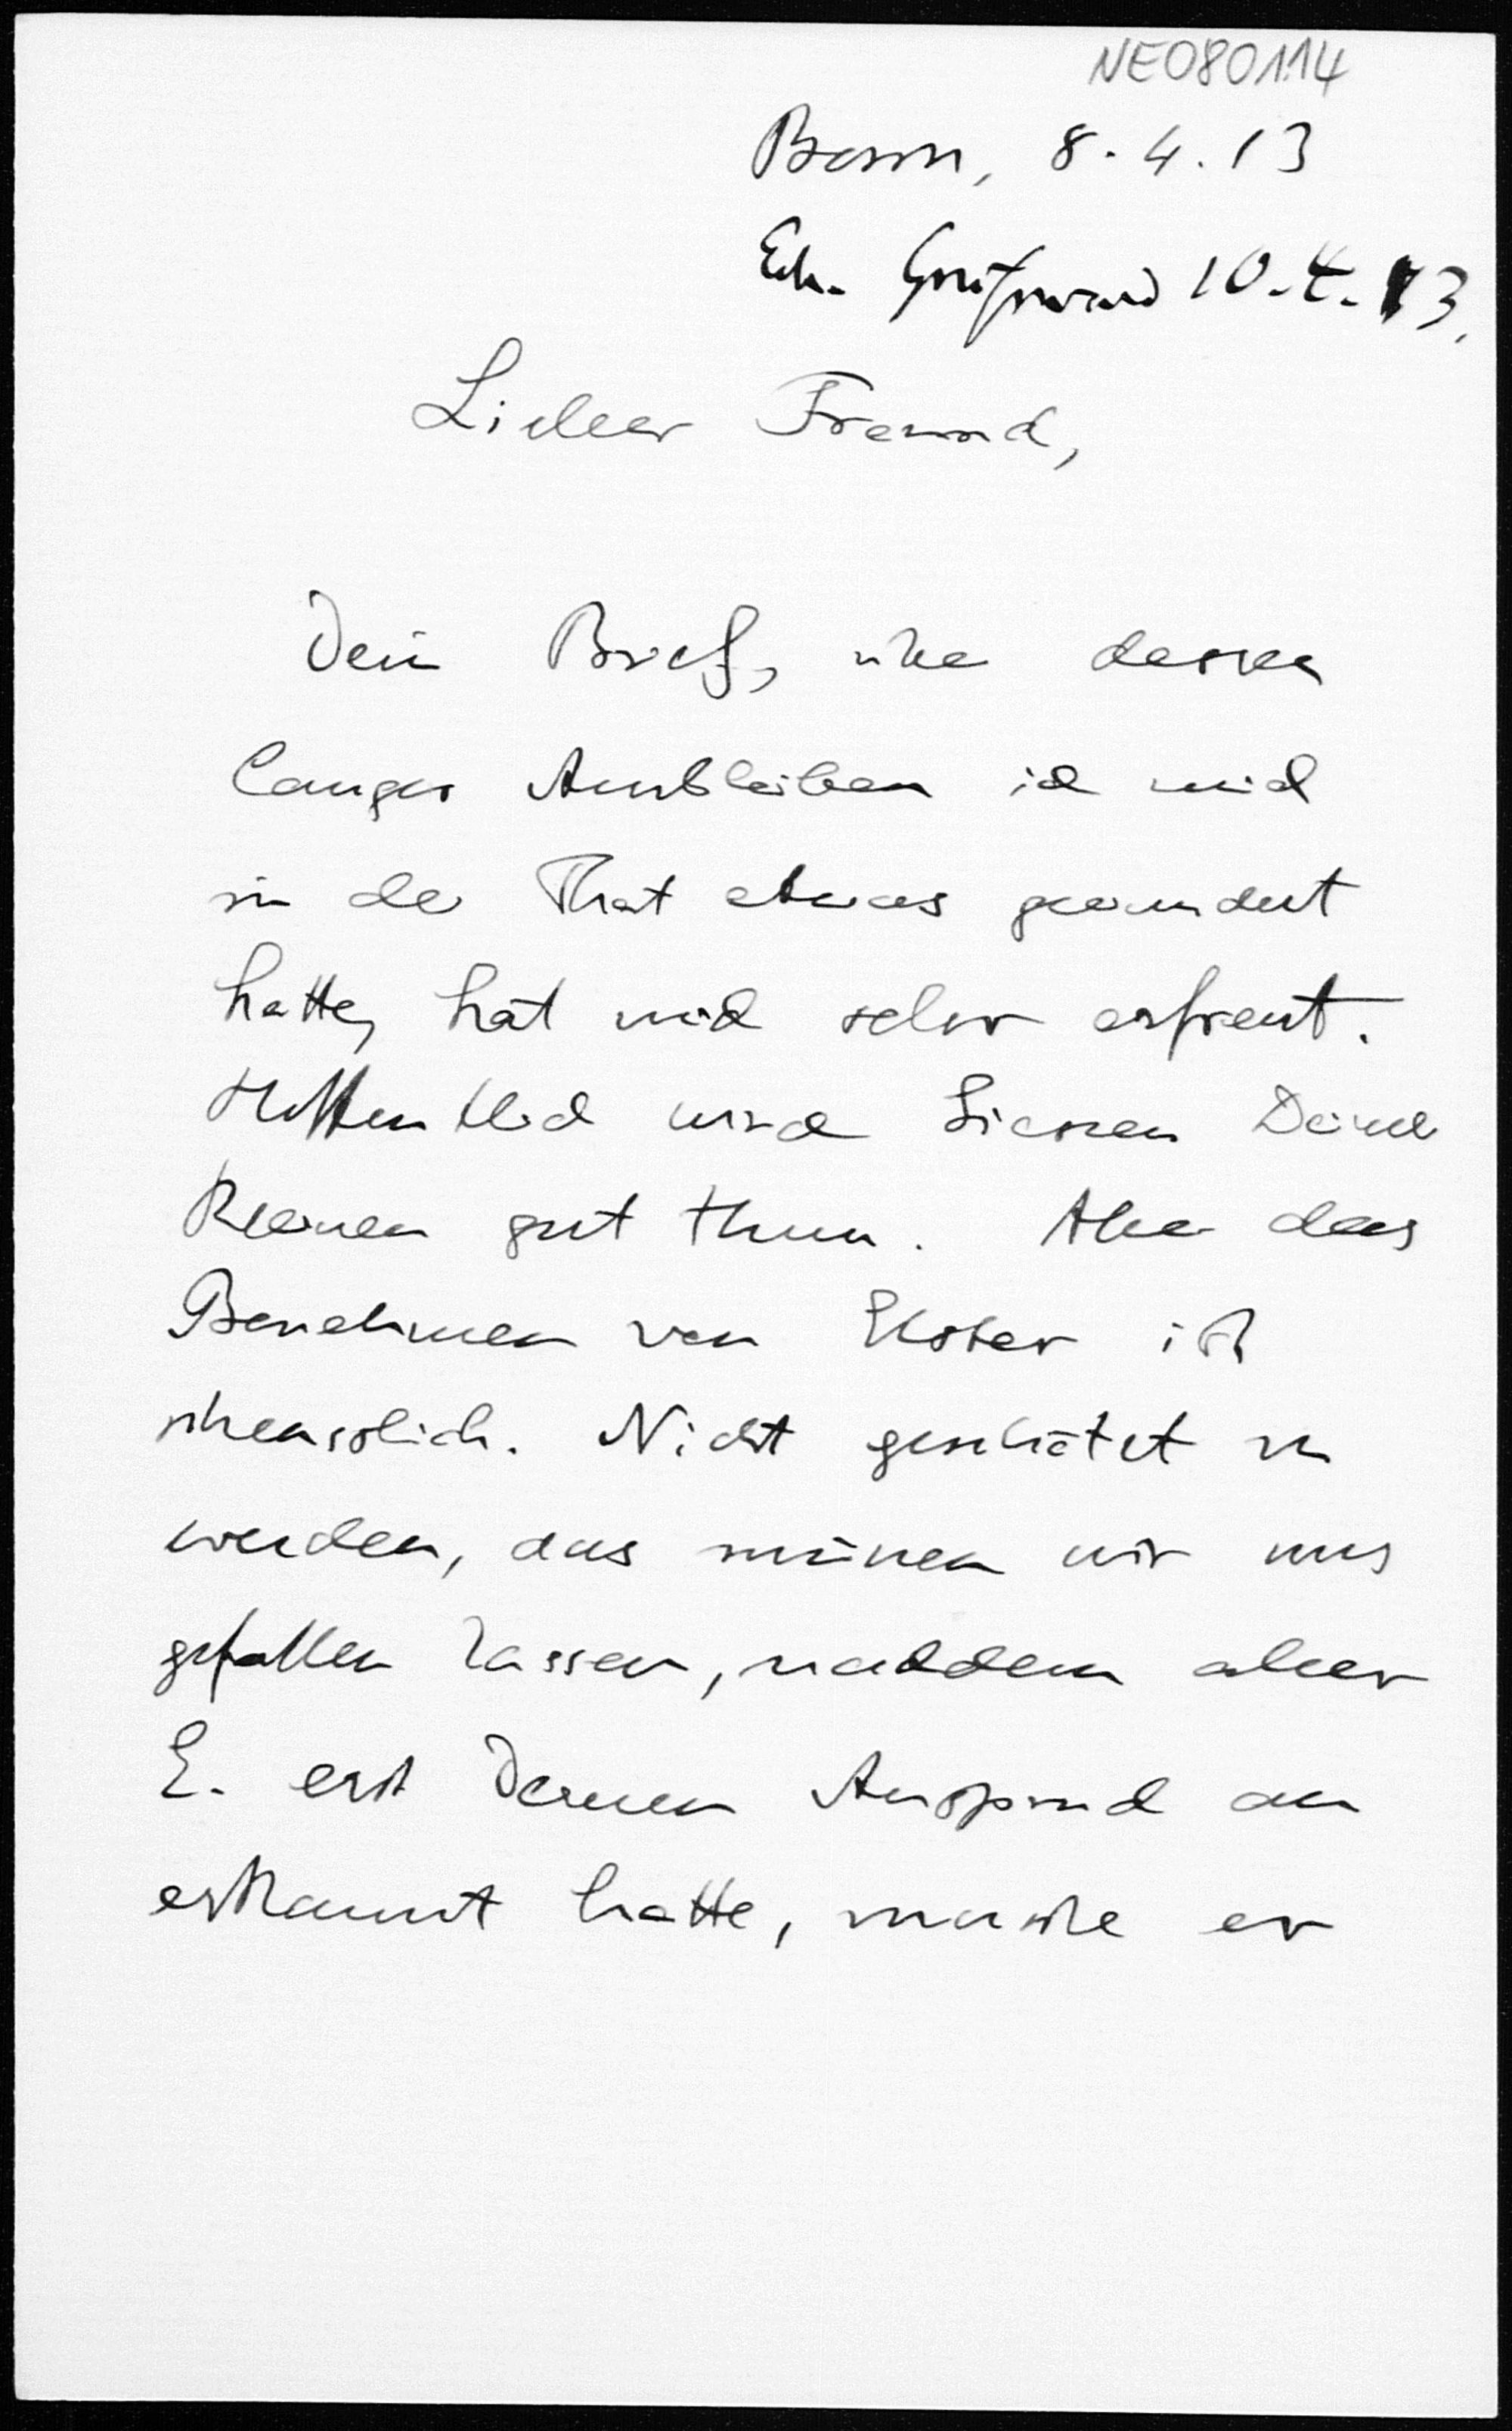 NE080114
Bonn, 8.4.13
Erh. Greifswald 10.4.13.
Lieber Freund,
Dein Brief, über dessen
langes Ausbleiben ich mich
in der That etwas gewundert
hatte, hat mich sehr erfreut.
Hoffentlich wird Siessen Deine
gut thun. Aber das
Benehmen von Elster ist
scheusslich. Nicht geschätzt zu
werden, das müssen wir uns
gefallen lassen, nachdem aber
E. erst Deinen Anspruch an
erkannt hatte, musste er